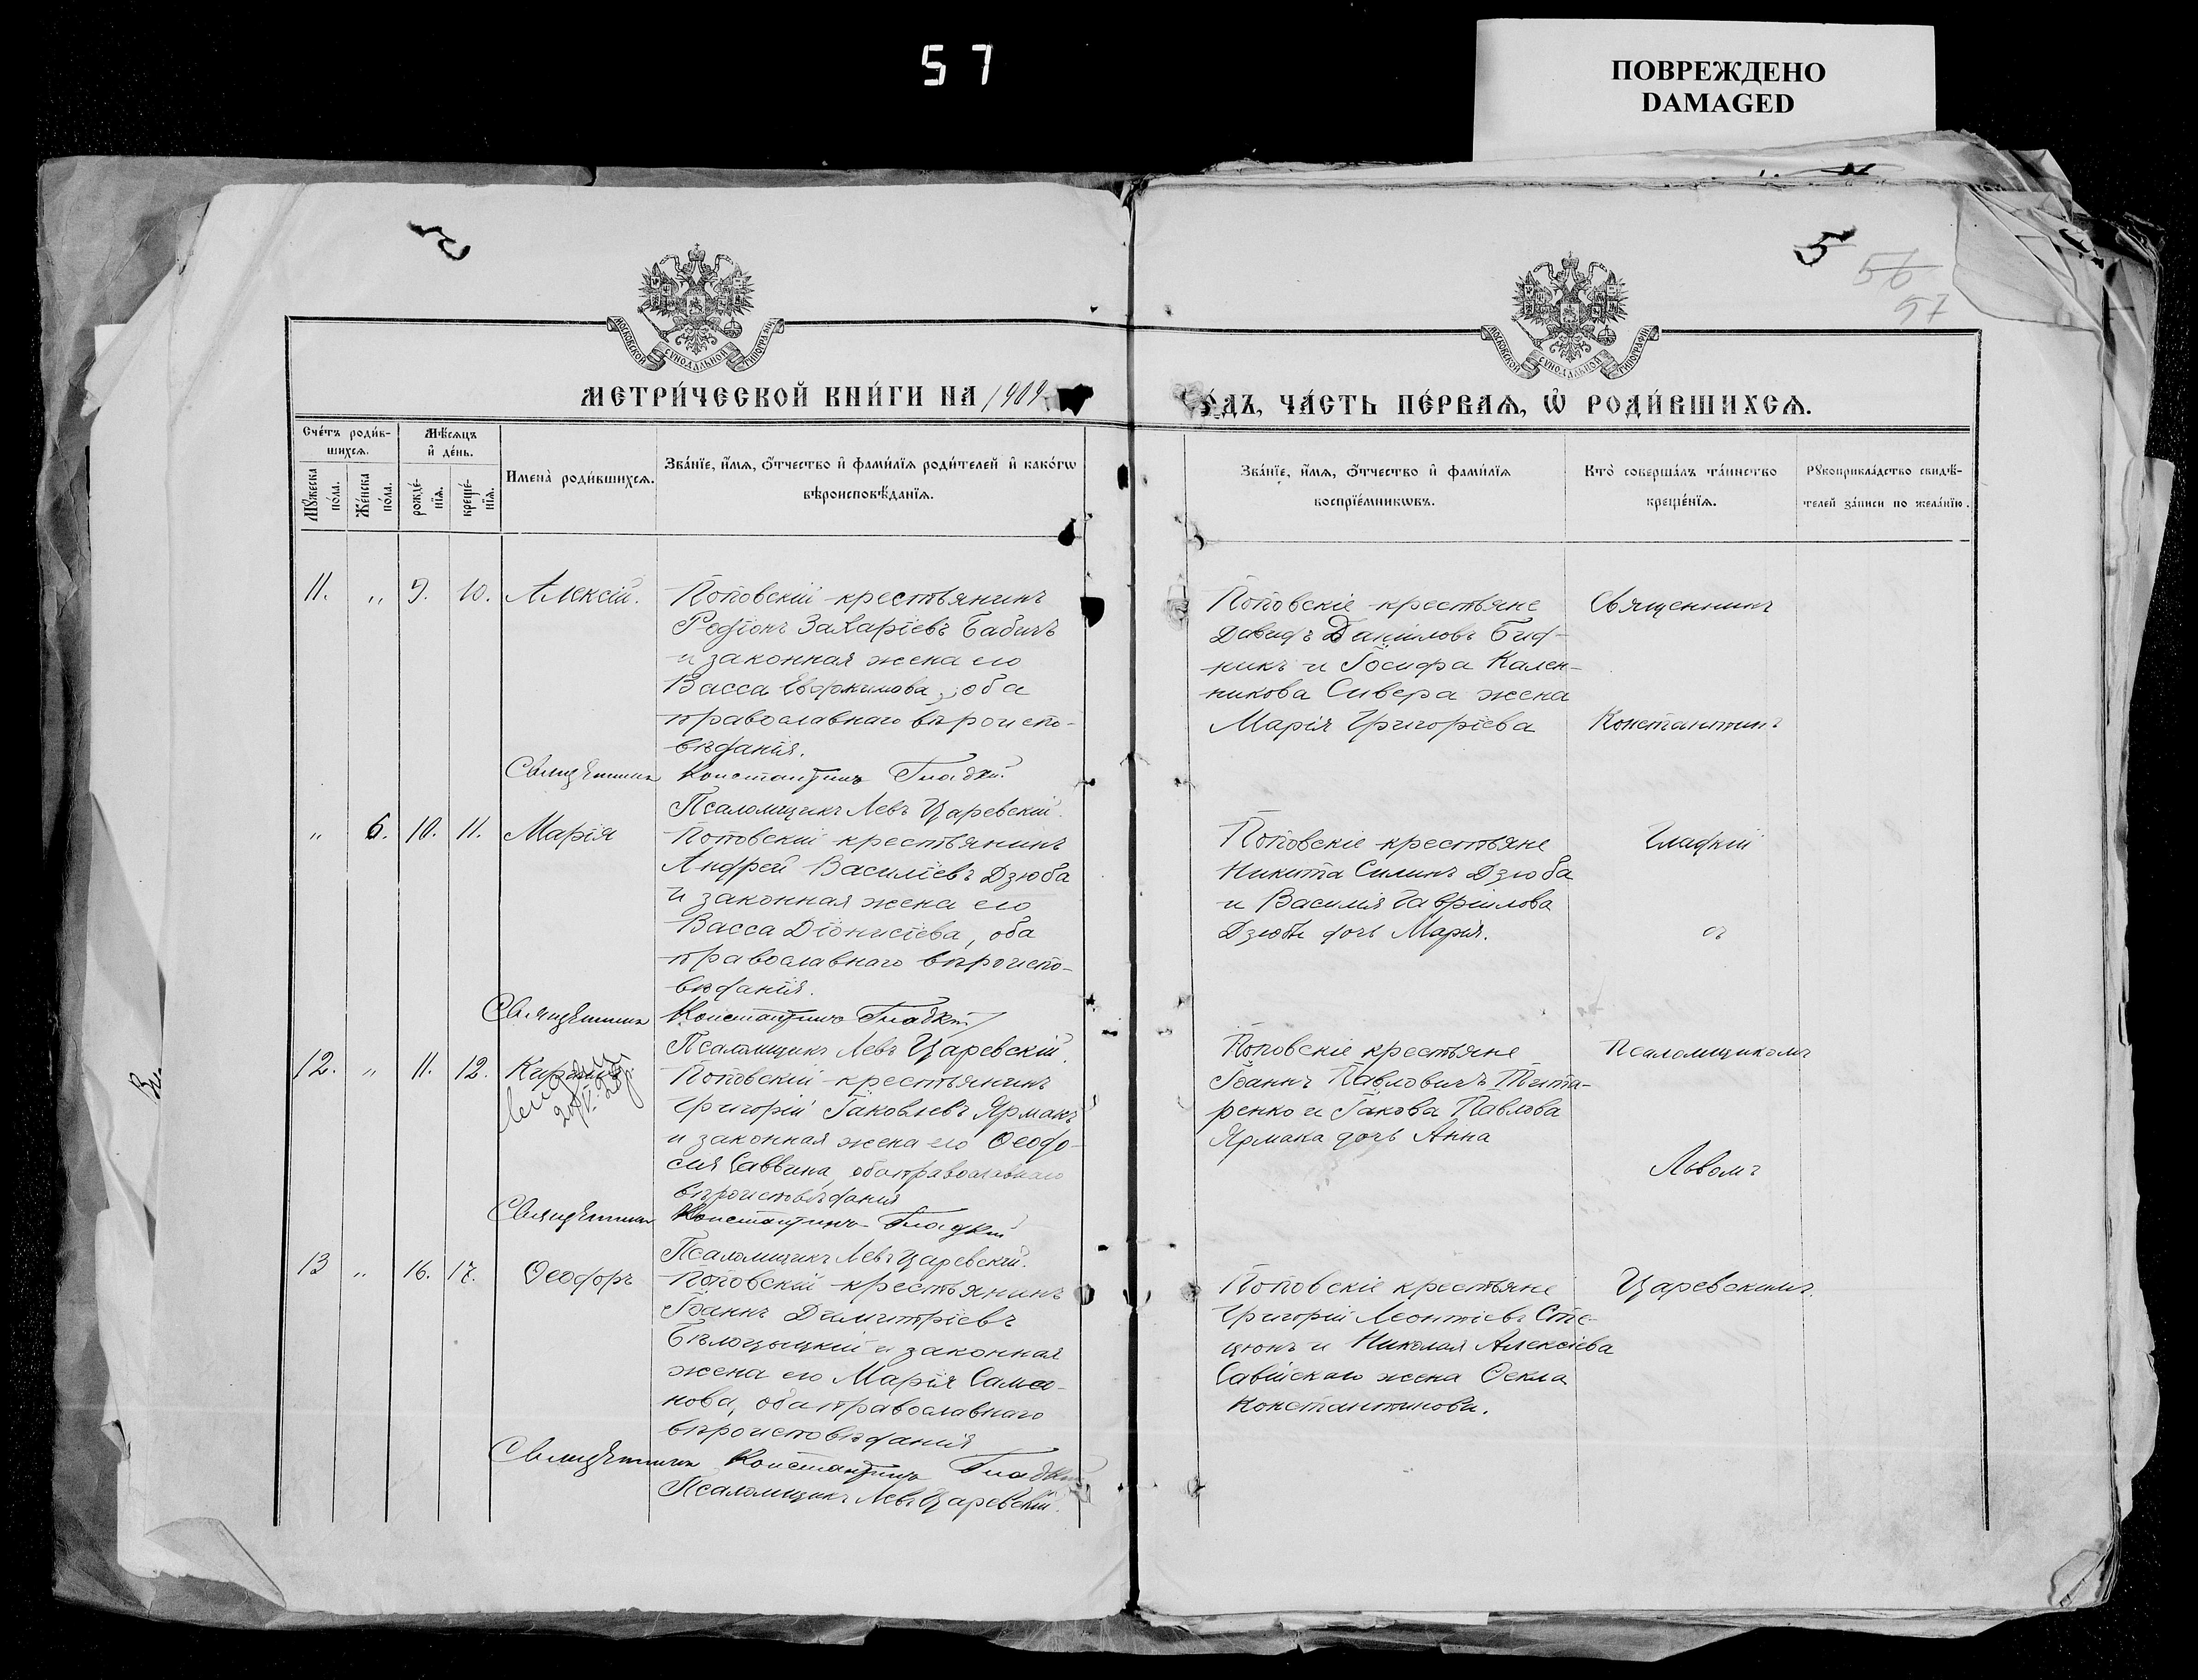 57
ПОВРЕЖДЕНО
DAMAGED
5
5
56
57
МОСКОВСКОЙ СѴНОДАЛЬНОЙ ТИПОГРАФІИ
МОСКОВСКОЙ СѴНОДАЛЬНОЙ ТИПОГРАФІИ
МЕТРИ́ЧЕСКОЙ КНИ́ГИ НА 1909
ГО́ДЪ, ЧА́СТЬ ПЕ́РВАЯ, Ѡ҆ РОДИ́ВШИХСЯ.
Сче́тъ роди́в-
шихся.
Мѣ́сяцъ
и҆ де́нь.
Мꙋ́жеска
по́ла.
Же́нска
по́ла.
рожде́-
нїя.
креще́-
нїя.
Имена̀ роди́вшихся.
Зва́нїе, и҆́мя, ѻ҆́тчество и҆ фами́лїя роди́телей и҆ како́гѡ
вѣроисповѣ́данїя.
Зва́нїе, и҆́мя, ѻ҆́тчество и҆ фами́лїя
воспрїе́мникѡвъ.
Кто̀ соверша́лъ та́инство
креще́нїя.
Рꙋкоприкла́дство свидѣ́-
телей за́писи по жела́нїю.
11. „ 9. 10. Алексій.
Поповскій крестьянинъ
Родіонъ Захаріевъ Бабичъ
и законная жена его
Васса Евфимова, оба
православнаго вѣроиспо-
вѣданія.
Священникъ Константинъ Гладкій
Псаломщикъ Левъ Царевскій.
Поповскіе крестьяне
Давидъ Даниловъ Бид-
никъ и Іосифа Кален-
никова Сивера жена
Марія Григоріева
Священникъ
Константинъ
„ 6. 10. 11. Марія
Поповскій крестьянинъ
Андрей Василіевъ Дзюба
и законная жена его
Васса Діонисіева, оба
православнаго вѣроиспо-
вѣданія.
Священникъ Константинъ Гладкій
Псаломщикъ Левъ Царевскій.
Поповскіе крестьяне
Никита Силинъ Дзюба
и Василія Гавріилова
Дзюбы дочь Марія.
Гладкій
съ
12. „ 11. 12. Кириллъ
Поповскій крестьянинъ
Григорій Іаковлевъ Ярмакъ
и законная жена его Ѳеодо-
сія Саввина, оба православнаго
вѣроисповѣданія
Священникъ Константинъ Гладкій
Псаломщикъ Левъ Царевскій.
Поповскіе крестьяне
Іоаннъ Павловичъ Тита-
ренко и Іакова Павлова
Ярмака дочь Анна
Псаломщикомъ
Львомъ
13 „ 16. 17. Ѳеодоръ
Поповскій крестьянинъ
Іоаннъ Димитріевъ
Бѣлоцыцкій и законная
жена его Марія Самсо-
нова, оба православнаго
вѣроисповѣданія
Священникъ Константинъ Гладкій
Псаломщикъ Левъ Царевскій.
Поповскіе крестьяне
Григорій Леонтіевъ Сте-
цюкъ и Николая Алексіева
Савійскаго жена Ѳекла
Константинова.
Царевскимъ.